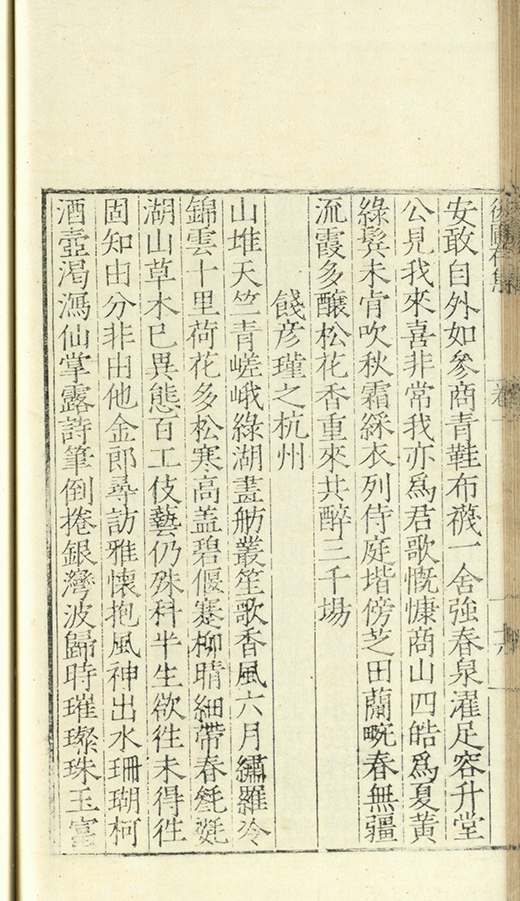 卷一
安敢自外如參商青鞋布襪一舍強春泉濯足容升堂
公見我來喜非常我亦爲君歌慨慷商山四皓爲夏黃
綠鬂未肯吹秋霜綵衣列侍庭堦傍芝田蘭畹春無疆
流霞多釀松花香重來共醉三千場
餞彦瑾之杭州
山堆天竺青嵯峨綠湖畫舫叢笙歌香風六月繡羅冷
錦雲十里荷花多松寒高盖碧偃蹇柳晴細帶春毿毿
湖山草木已異態百工伎藝仍殊科半生欲徃未得徃
固知由分非由他金郎尋訪雅懷抱風神出水珊瑚柯
酒壺渴瀉仙掌露詩筆倒捲銀灣波歸時璀璨珠玉富